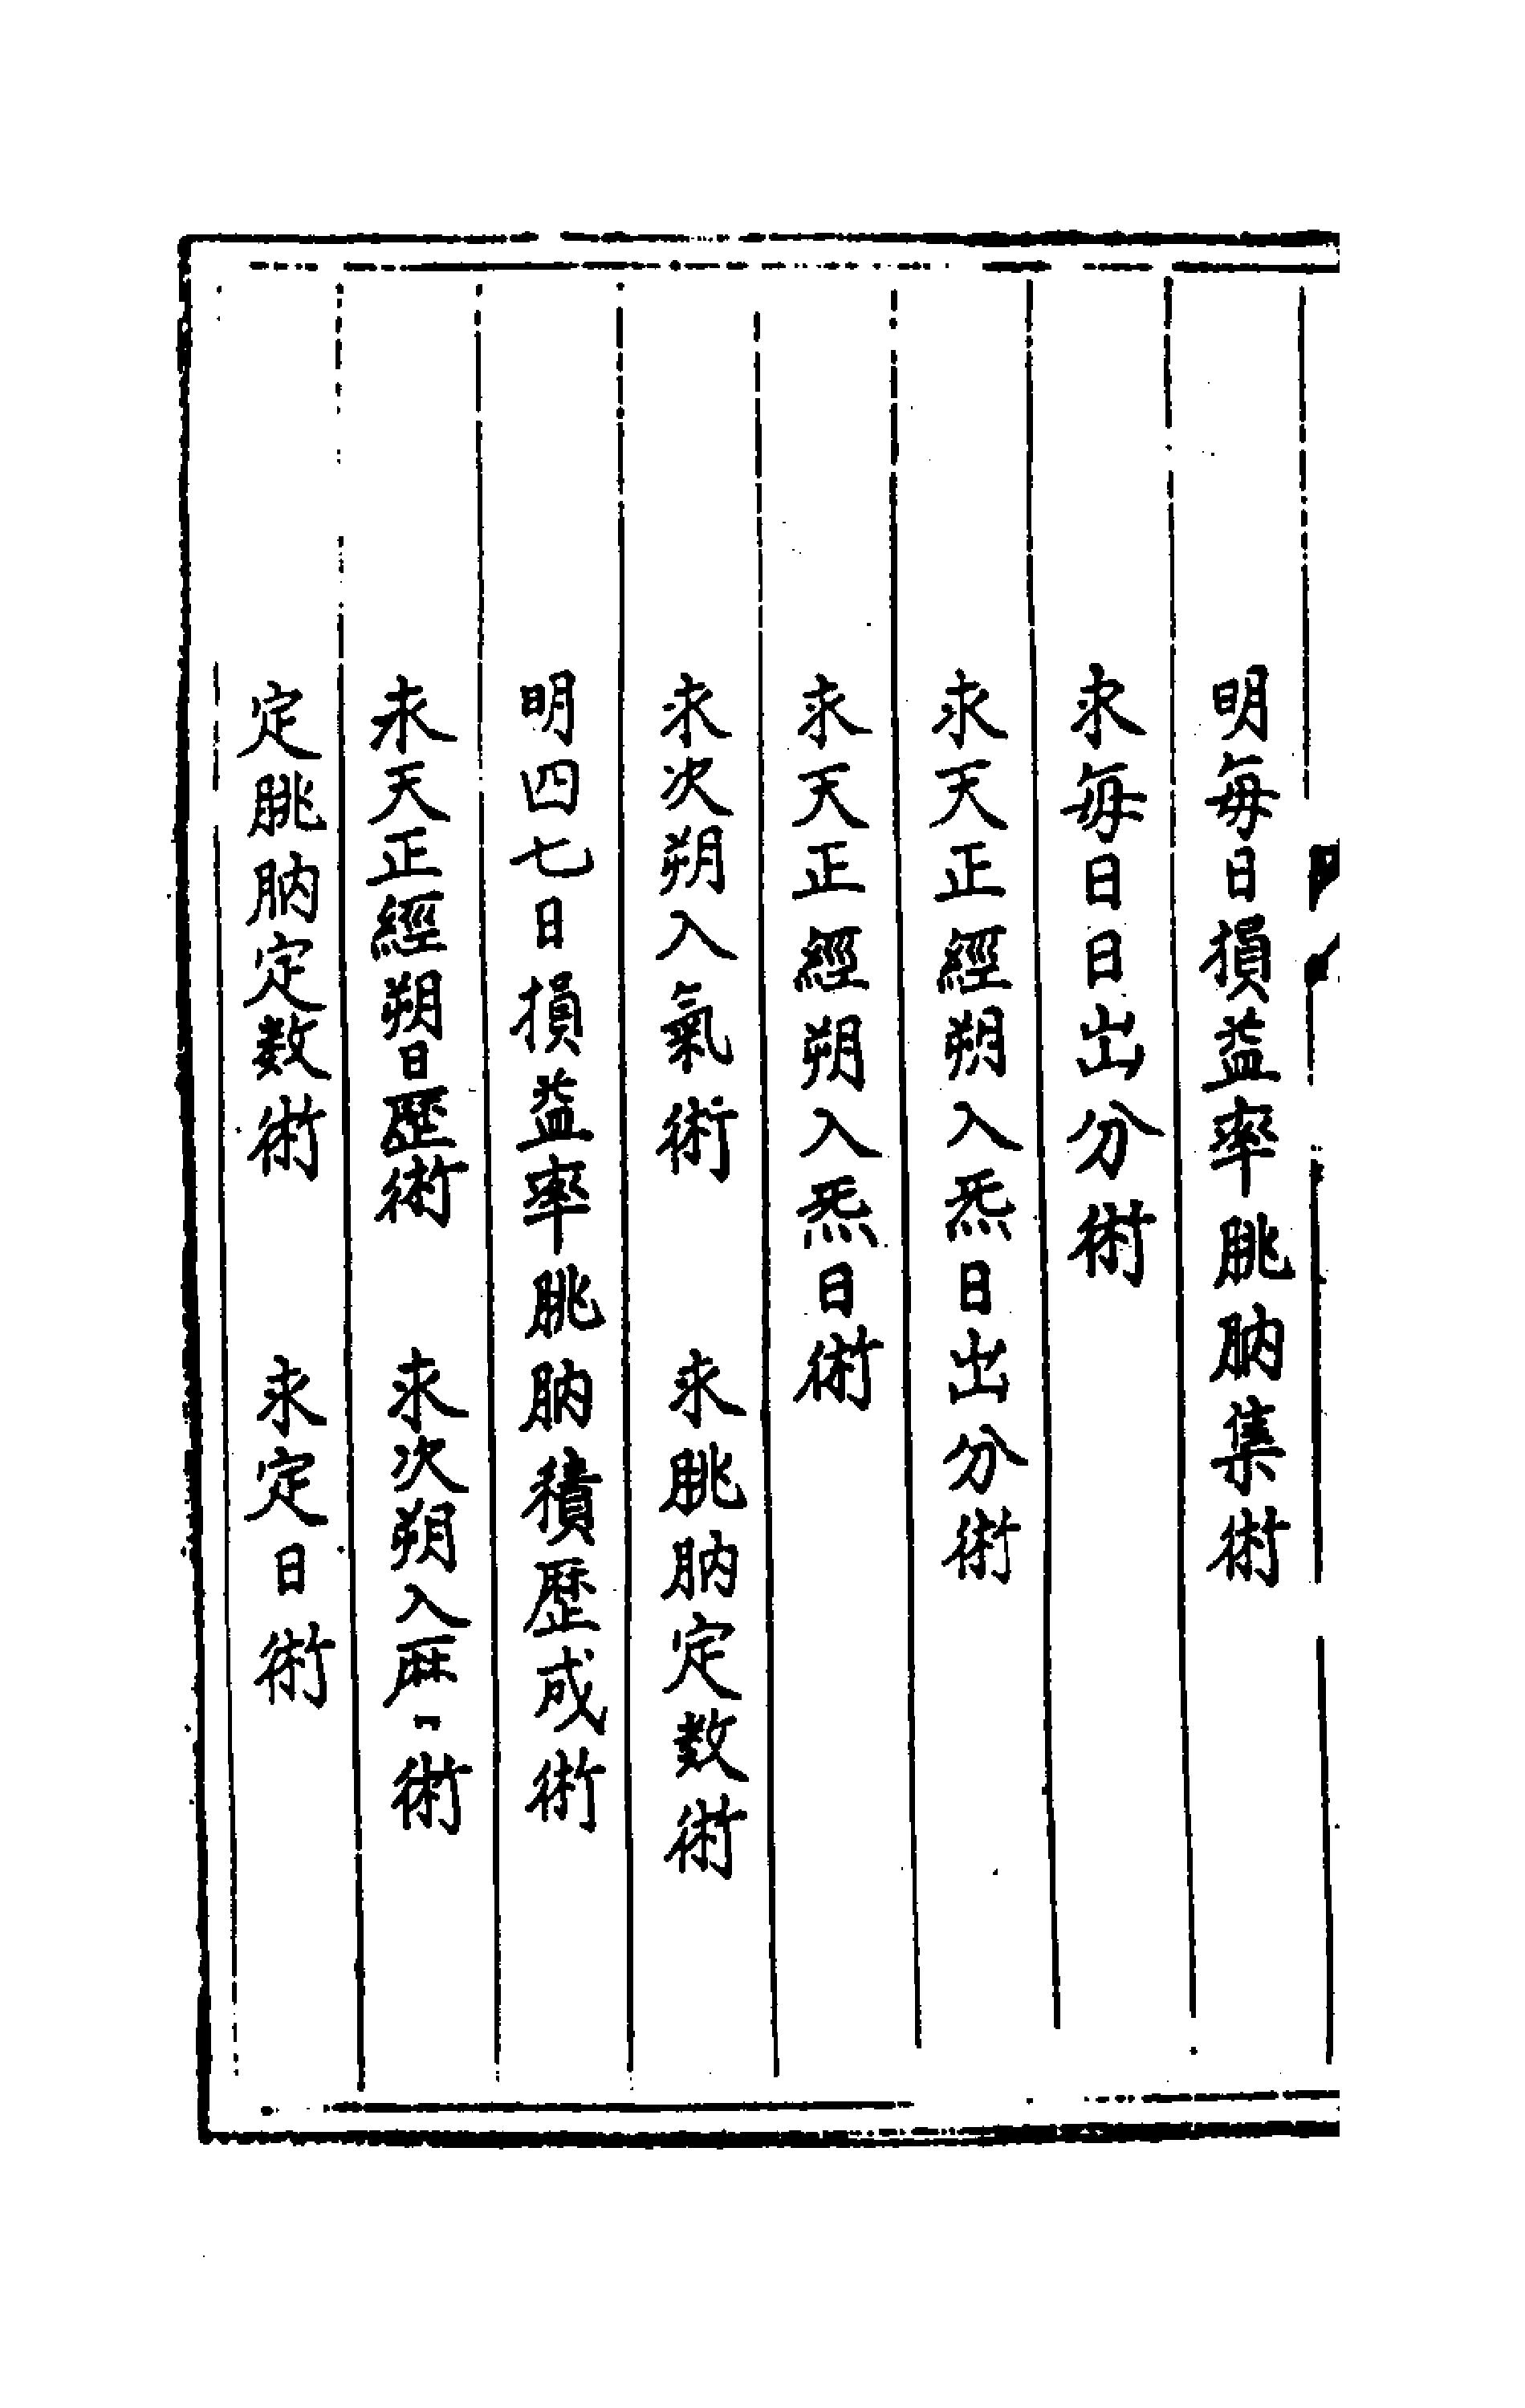 明每日損益率朓朒集術
求每日日出分術
求天正經朔入炁日出分術
求天正經朔入炁日術
求次朔入氣術　求朓朒定数術
明四七日損益率朓朒積歷成術
求天正經朔日歷術　求次朔入歷術
定朓朒定数術　求定日術